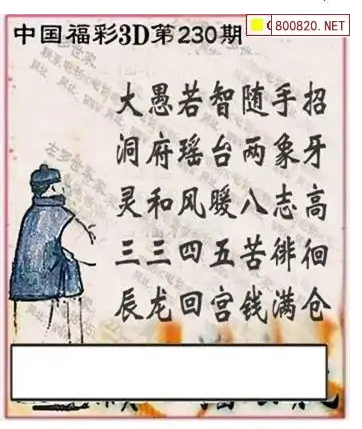 中国福彩3D第230期
800820.NET
大愚若智随手招
洞府瑶台两象牙
灵和风暖八志高
三三四五苦徘徊
辰龙回宫钱满仓